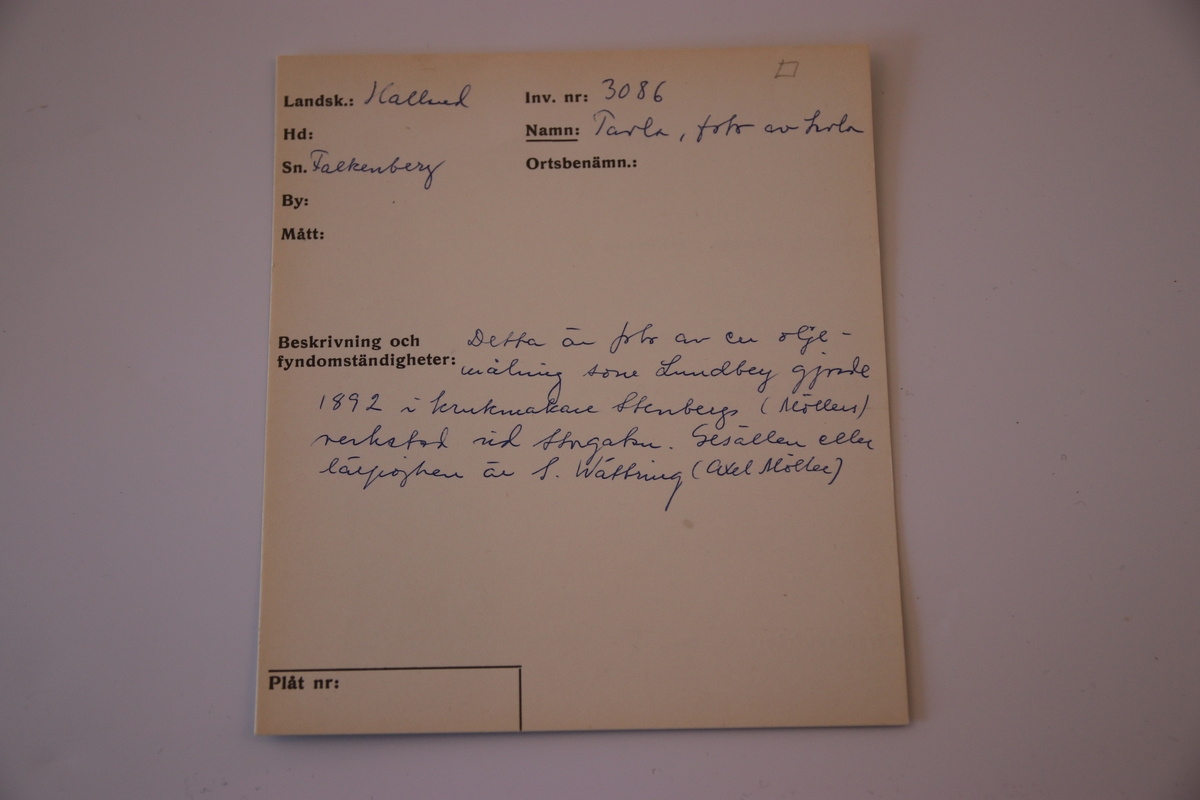 Landsk.: Halland
Inv. nr: 3086
Hd:
Namn: Tavla, foto av
Sn. Falkenberg
Ortsbenämn.:
By:
Mått:
Beskrivning och
fyndomständigheter:
Detta är foto av en olje-
målning som Lundberg gjorde
1892 i krukmakare Stenbergs (Möllers)
verkstad vid Storgatan. Gesällen eller
lärpojken är S. Wättring (Axel Möller)
Plåt nr: